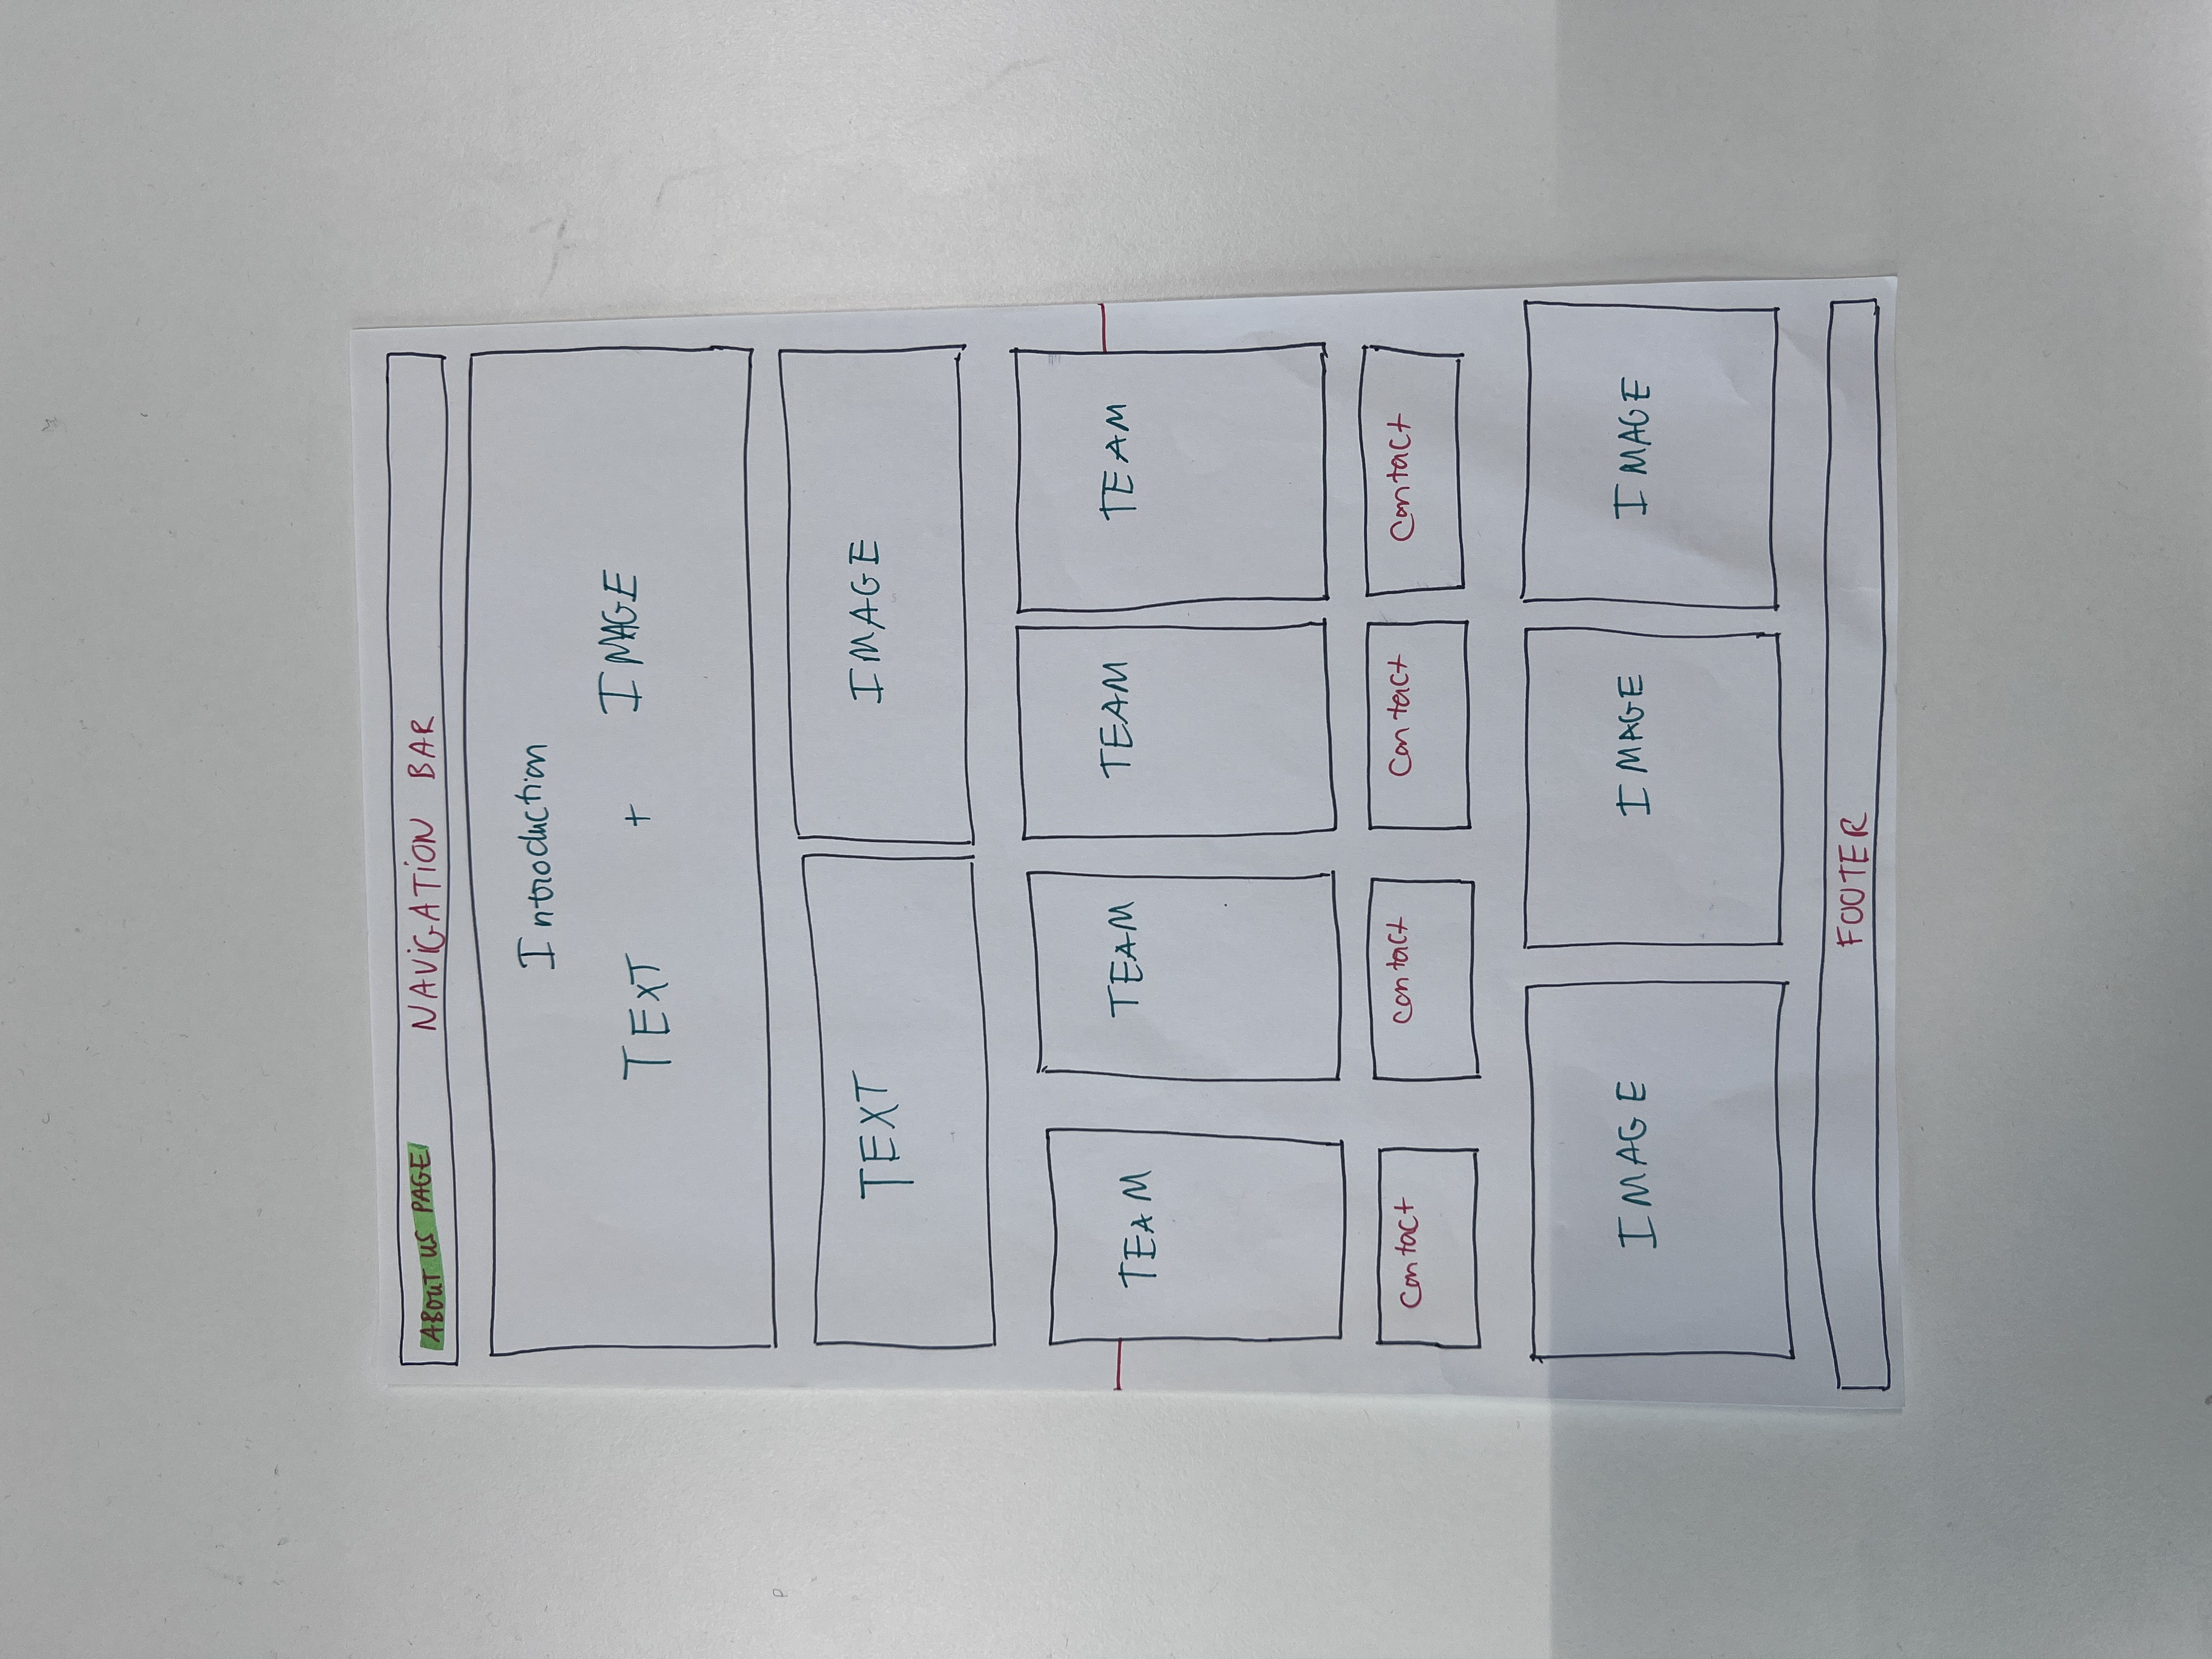 ABOUT US PAGE
NAViGATiON BAR
Introduction
TEXT + IMAGE
TEXT
IMAGE
TEAM
TEAM
TEAM
TEAM
contact
contact
contact
contact
IMAGE
IMAGE
IMAGE
FOOTER